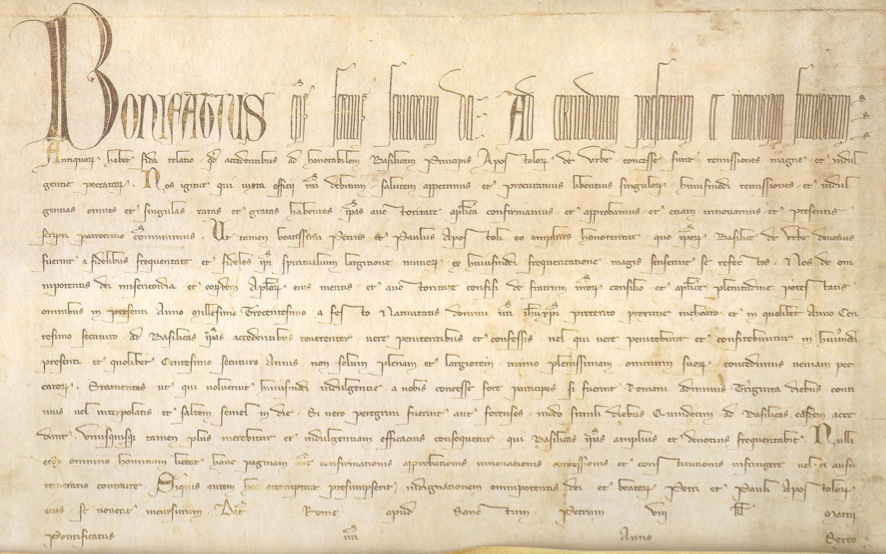 Bonifatius eps servus servorum dei Ad certitudinem presentium et memoriam futurorum
Antiquorum habet fida relatio quod accedentibus ad honorabilem Basilicam Principis Apostolorum de Urbe concesse sunt remissiones magne et indul
gentie peccatorum Nos igitur qui iuxta officii nri debitum salutem appetimus et procuramus libentius singulorum huiusmodi remissiones et indul
gentias omnes et singulas ratas et gratas habentes ipas auctoritate aplica confirmamus et approbamus et etiam innovamus et presentis
scripti patrocinio communimus Ut tamen beatissimi Petrus et Paulus Apostoli eo amplius honorentur quo ipor Basilice de Urbe devotius
fuerint a fidelibus frequentate et fideles ipi spiritualium largitione munerum ex huiusmodi frequentatione magis senserint se refectos Nos de om
nipotentis dei misericordia et eorundem Aplor eius meritis et auctoritate confisi de fratrum nror consilio et aplice plenitudine potestatis
omnibus in presenti Anno Millesimo Trecentesimo a festo Nativitatis domini nri ihu xpi preterito proxime inchoato et in quolibet Anno Cen
tesimo secuturo ad Basilicas ipas accedentibus reverenter vere penitentibus et confessis vel qui vere penitebunt et confitebuntur in huiusmodi
presenti et quolibet Centesimo secuturo Annis non solum plenam et largiorem immo plenissimam omnium suor concedimus veniam pec
catorum Statuentes ut qui voluerint huiusmodi indulgentie a nobis concesse fore participes si fuerint Romani ad minus Triginta diebus conti
nuis vel interpolatis et saltem semel in die Si vero peregrini fuerint aut forenses modo simili diebus Quindecim ad Basilicas easdem acce
dant Unusquisque tamen plus merebitur et indulgentiam efficacius consequetur qui Basilicas ipas amplius et devotius frequentabit Nulli
ergo omnino hominum liceat hanc paginam nre confirmationis approbationis innovationis concessionis et constitutionis infringere vel ei ausu
temerario contraire Siquis autem hoc attemptare presumpserit indignationem omnipotentis dei et beatorum Petri et Pauli Apostolorum
eius se noverit incursurum Dat Rome apud Sanctum Petrum viii kl Martii
Pontificatus nri Anno Sexto